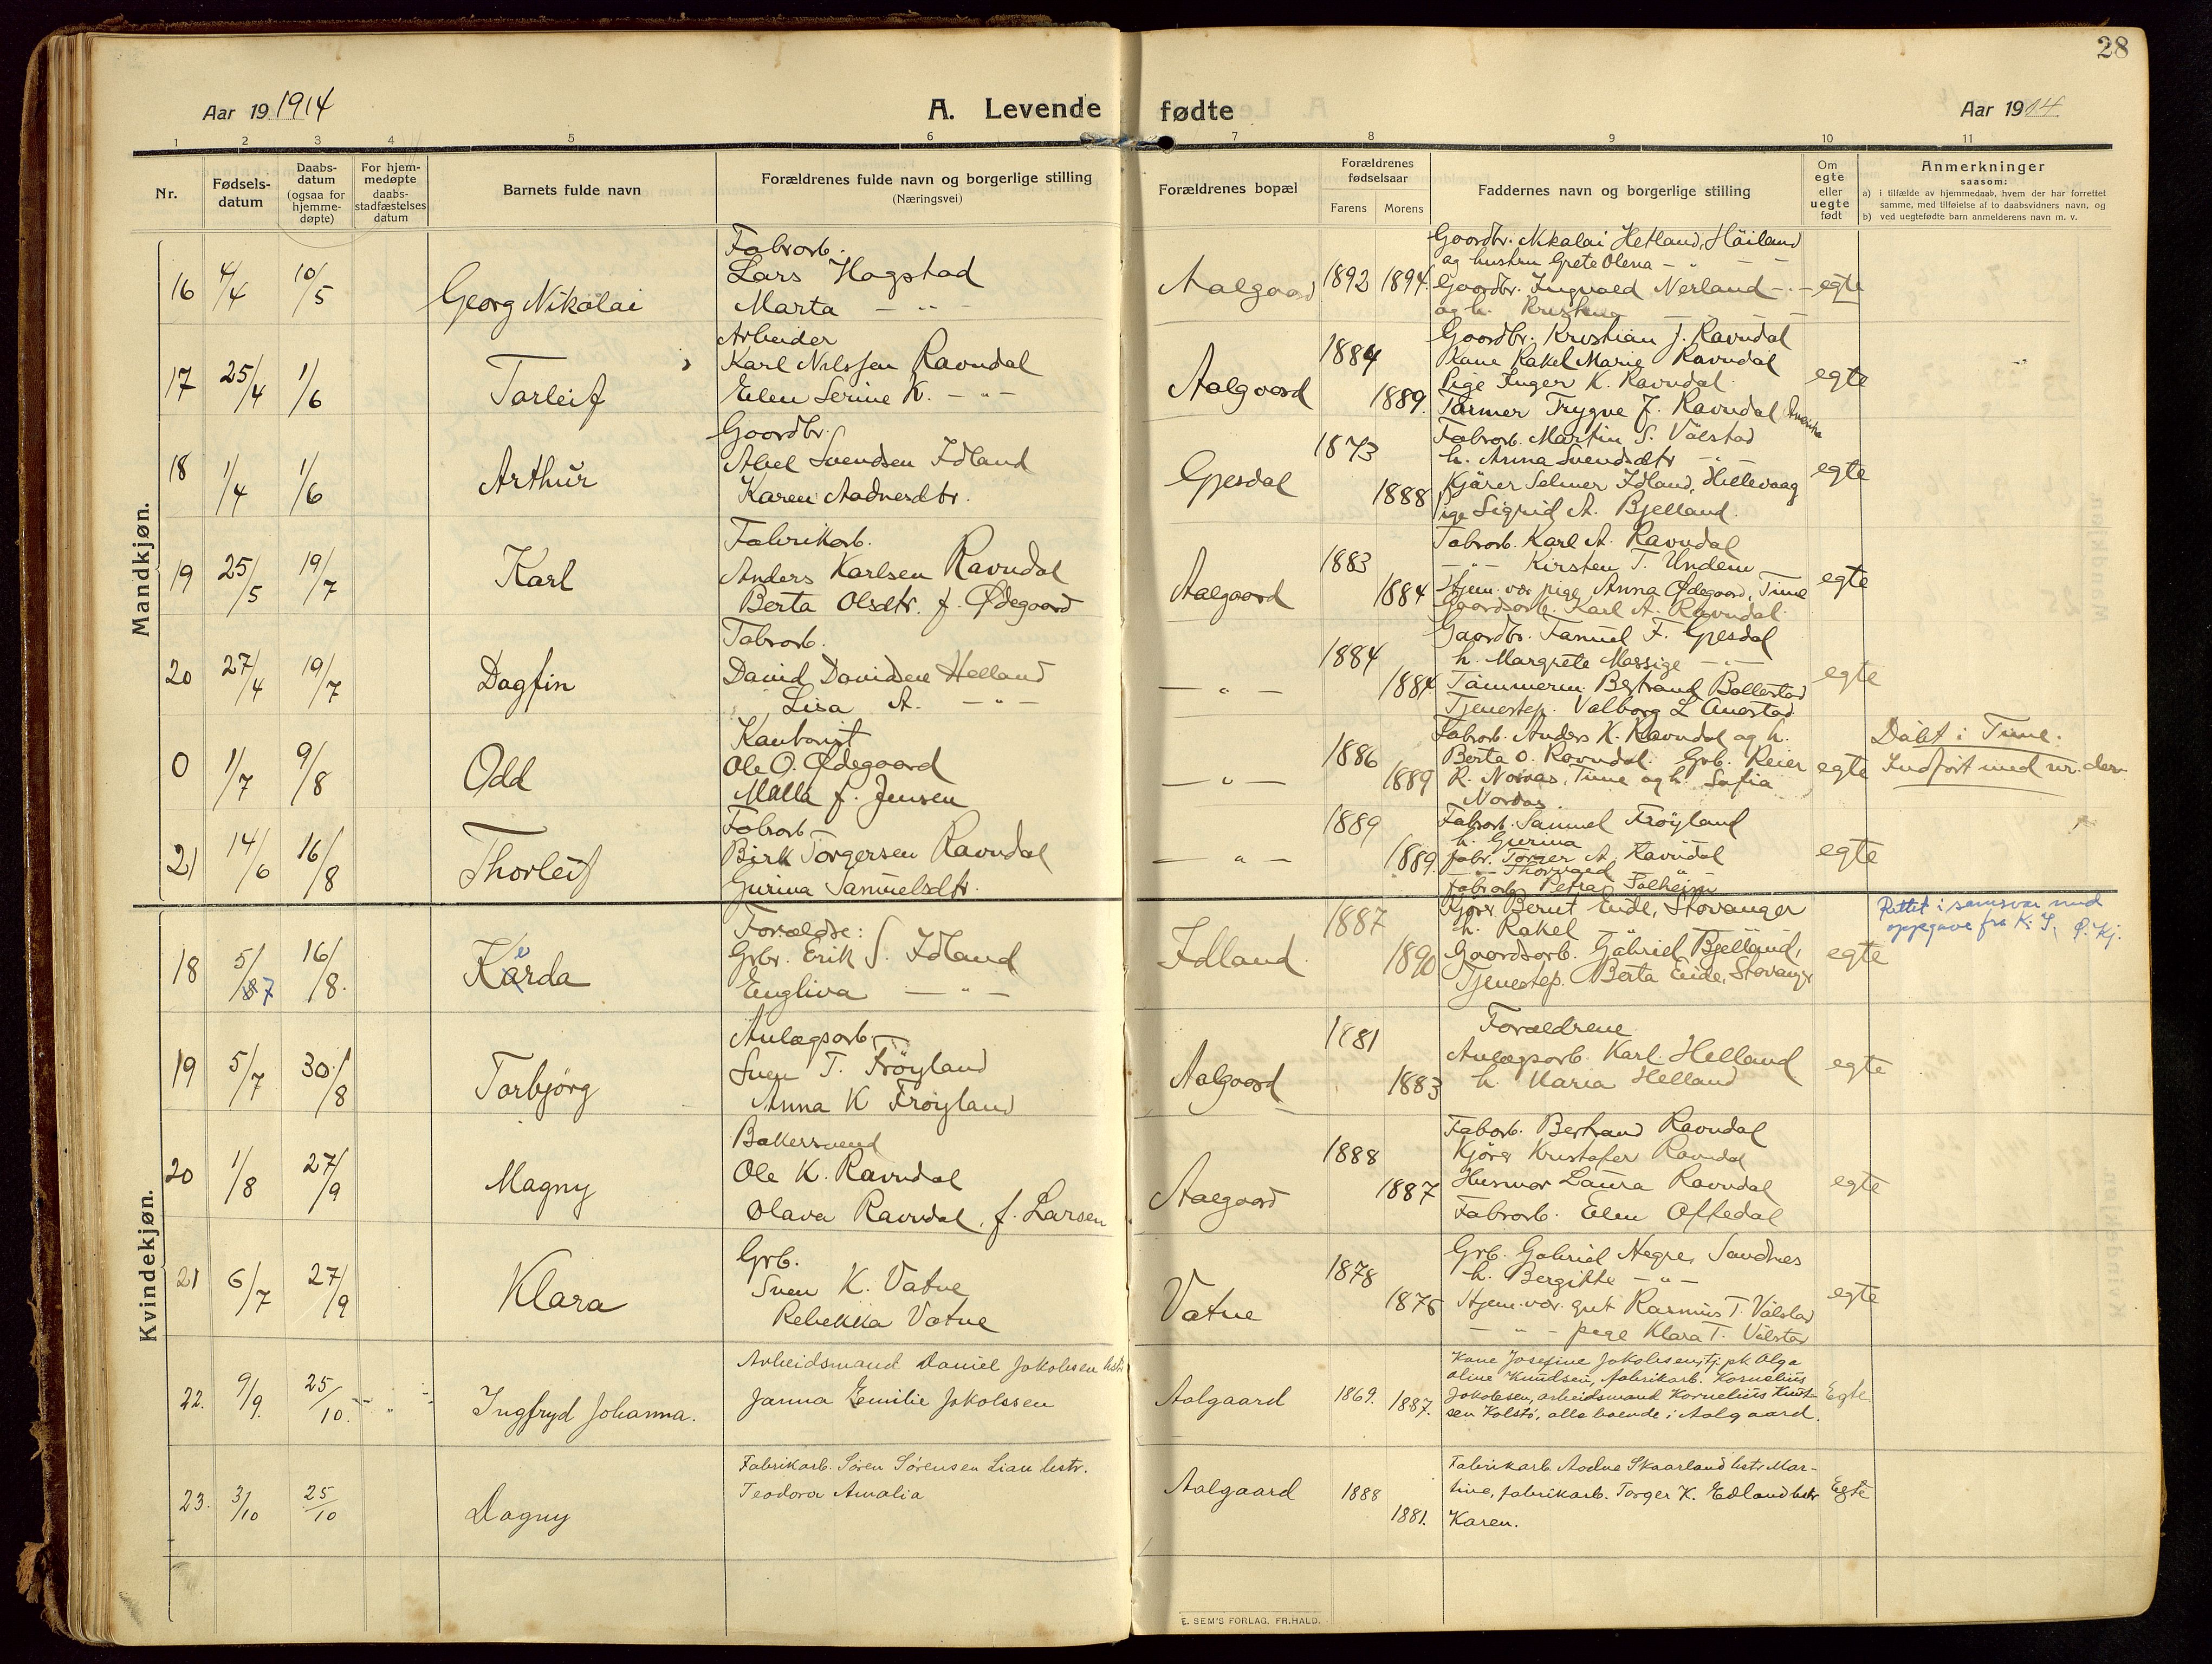 28
Aar 19 1914
A. Levende fødte
Aar 1914
1 2 3 4 5 6 7 8 9 10 11
Nr.
Fødsels-
datum
Daabs-
datum
(ogsaa for
hjemme-
døpte)
For hjem-
medøpte
daabs-
stadfæstelses
datum
Barnets fulde navn
Forældrenes fulde navn og borgerlige stilling
(Næringsvei)
Forældrenes bopæl
Forældrenes
fødselsaar
Farens Morens
Faddernes navn og borgerlige stilling
Om
egte
eller
uegte
født
Anmerkninger
saasom:
a) i tilfælde av hjemmedaab, hvem der har forrettet
samme, med tilføielse af to daabsvidners navn, og
b) ved uegtefødte barn anmelderens navn m. v.
Mandkjøn.
16 4/4 10/5 Georg Nikolai
Fabrarb.
Lars Hagstad
Marta — " —
Aalgaard 1892 1894
Gaardbr. Nikolai Hetland, Häiland
og hustru Grete Olena — " —
Gaardbr. Ingvald Nerland — " —
og h. Kristina
egte
17 25/4 1/6 Torleif
Arbeider
Karl Nilssen Ravndal
Elen Serine K. — " —
Aalgaard 1884 1889.
Gaardbr. Kristian J. Ravndal
Kone Rakel Marie Ravndal
Pige Inger K. Ravndal
Farmer Trygve J. Ravndal Amerika
egte
18 1/4 1/6 Arthur
Gaardbr.
Abel Svendsen Idland
Karen Aadnesdtr.
Gjesdal 1873 1888
Fabrarb. Martin S. Vålstad
h. Anna Svendsdtr — " —
Kjører Selmer Idland, Hillevaag
Pige Sigrid A. Bjelland.
egte
19 25/5 19/7 Karl
Fabrikarb.
Anders Karlsen Ravndal
Berta Olsdtr. f. Ødegaard
Aalgaard 1883 1884
Fabrarb. Karl A. Ravndal
— " — Kirsten T. Undem
Hjem.vær. pige Anna Ødegaard, Time
Gaardsarb. Karl A. Ravndal
egte
20 27/4 19/7 Dagfin
Fabrarb.
David Davidsen Helland
Lisa A. — " —
— " — 1884 1884
Gaardbr. F. Gjesdal
h. Margrete Massige — " —
Tømmerm. Bertrand Bollestad
Tjenestep. Valborg L Auestad
egte
0 1/7 9/8 Odd
Ole O. Ødegaard
Malla f. Jensen
— " — 1886 1889
Fabrarb. Anders K. Ravndal og h.
Berta O. Ravndal. Grb. Reier
R. Noraas, Time og h. Sofia
Nordaas.
egte
Døbt i Time.
Indført med nr. der
21 14/6 16/8 Thorleif
Fabrarb.
Birk Torgersen Ravndal
Gurina Samuelsdtr.
— " — 1889 1889.
Fabrarb. Samuel Frøyland
h. Gurina
fabr. Torger A. Ravndal
Fabrarb. Petra
egte
Kvindekjøn.
18 5/7 16/8 Kårda
Forældre:
Grbr. Erik S. Idland
Engliva — " —
Idland 1887 1890
Kjører Bernt Eide, Stavanger
h. Rakel
Gaardsarb. Gabriel Bjelland,
Tjenestep. Berta Eide, Stavanger
egte
Rettet i samsvar med
oppgave fra K. S. Ø. Kj.
19 5/7 30/8 Torbjørg
Anlægsarb.
Sven T. Frøyland
Anna K Frøyland
Aalgaard 1881 1883
Forældrene
Anlægsarb. Karl Helland
h. Maria Helland
egte
20 1/8 27/9 Magny
Bakersvend
Ole K. Ravndal
Olava Ravndal, f. Larsen
Aalgaard 1888 1887
Fabarb. Bertrand Ravndal
Kjører Kristofer Ravndal
Husmor Laura Ravndal
Fabrarb. Elen Oftedal
egte
21 6/7 27/9 Klara
Grb.
Sven K. Vatne
Rebekka Vatne
Vatne 1878 1876
Grb. Gabriel Hegre, Sandnes
h. Bergitte — " —
Hjem.vær. gut Rasmus T. Vålstad
— " — pige Klara T. Vålstad
egte
22. 9/9. 25/10. " Ingfryd Johanna.
Arbeidsmand Daniel Jakobsen hstr
Janna Emilie Jakobsen
Aalgaard 1869. 1887.
Kone Josefine Jakobsen, tj. pk Olga
Oline Knudsen, fabrikarb. Kornelius
Jakobsen, arbeidsmand Kornelius Knut-
sen Kolstø, alle boende i Aalgaard.
Egte
23. 3/10 25/10 Dagny
Fabrikarb. Søren Sørensen Lian hstr.
Teodora Amalia
Aalgaard 1888 1881.
Fabrikarb. Aadne Skaarland hstr Mar-
tine, fabrikarb. Torger K. Edland hstr
Karen.
Egte
E. SEM'S FORLAG, FR.HALD.